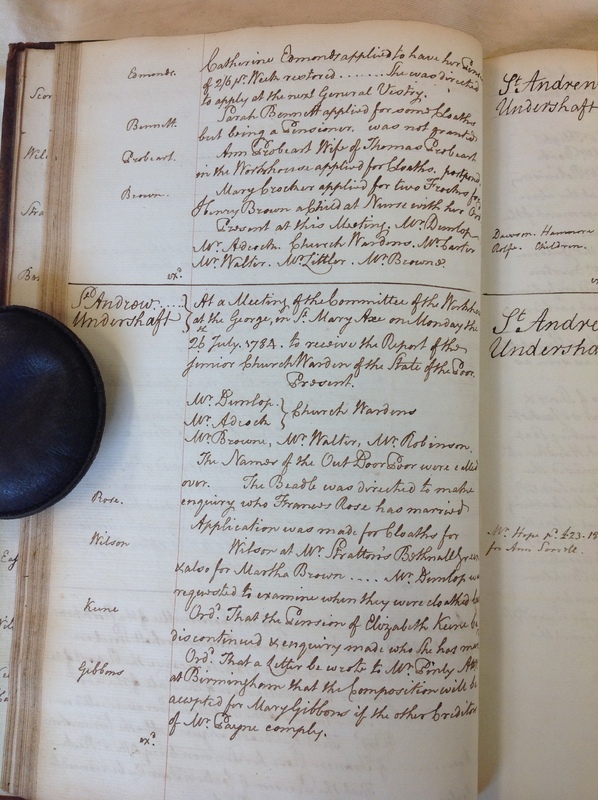 Edmonds. Catherine Edmonds applied to have her Pens
of 2/6 pr. Week restored ....... She was directed
to apply at the next General Vestry.
Bennett. Sarah Bennett applied for some Cloaths
but being a Pensioner, was not granted
Probeart. Ann Probeart Wife of Thomas Probeart
in the Workhouse applied for Cloaths, postpond
Brown. Mary Crocker applied for two Frocks for
Henry Brown a Child at Nurse with her Ord
Present at this Meeting. Mr. Dunlop
Mr. Adcock. Church Wardens. Mr. Carter
Mr. Walter. Mr. Littler. Mr. Browne.
exd.
St. Andrew....
Undershaft
At a Meeting of the Committee of the Workho
at the George, in St. Mary Axe on Monday the
26th July. 1784. to receive the Report of the
Junior Church Warden of the State of the Poor.
Present.
Mr. Dunlop.
Mr. Adcock
Church Wardens
Mr. Browne, Mr. Walter, Mr. Robinson.
The Names of the Out Door Poor were called
over. The Beadle was directed to make
Rose. enquiry who Frances Rose has married
Application was made for Cloaths for
Wilson Wilson at Mr. Stratton's Bethnall Green
& also for Martha Brown .... Mr. Dunlop wa
requested to examine when they were cloathed
Keene Ord. That the Pension of Elizabeth Keene be
discontinued & enquiry made who She has mar
Gibbons Ord. That a Letter be wrote to Mr. Finly
at Birmingham that the Composition will be
accepted for Mary Gibbons if the other Creditors
of Mr. Payne comply.
exd.
St. Andrew
Undershaft
Dawson. Hannora
Rolfe. Children.
St. Andre
Undersha
Mr. Hope pd. £23.18
for Ann Sorrell.